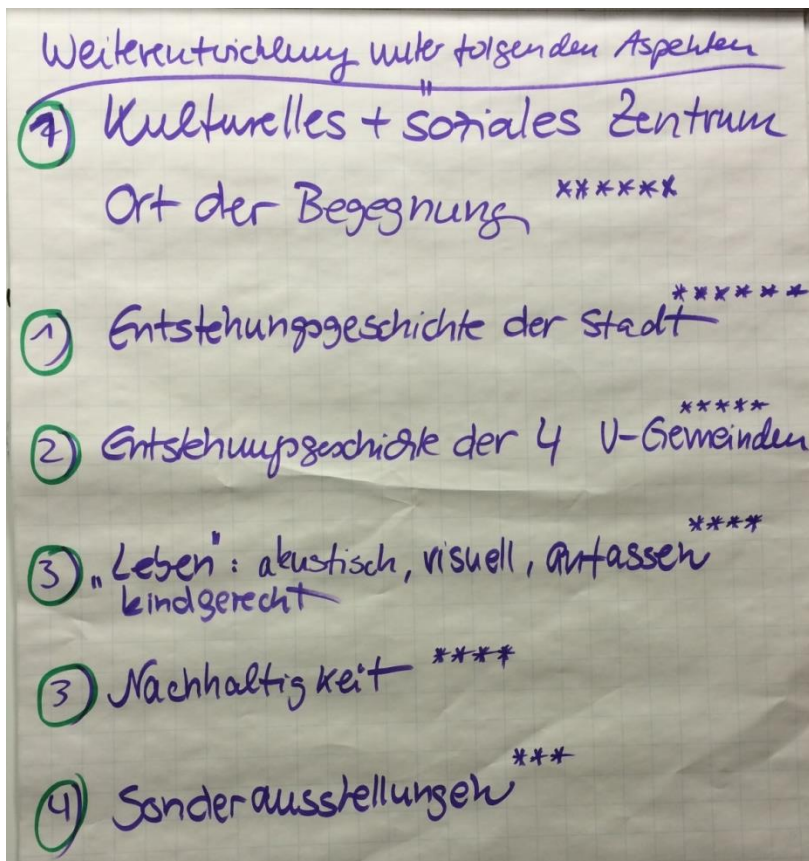 Weiterentwicklung unter folgenden Aspekten
1 Kulturelles + soziales Zentrum
Ort der Begegnung ******
1 Entstehungsgeschichte der Stadt ******
2 Entstehungsgeschichte der 4 V-Gemeinden *****
3 „Leben": akustisch, visuell, anfassen ****
kindgerecht
3 Nachhaltigkeit ****
4 Sonderausstellungen ***